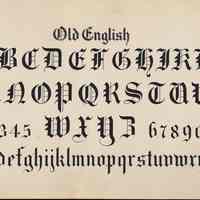 Old English
BCDEFGHIK
NOPQRSTU
345 WXYZ 67890
defghijklmnopqrstuvw